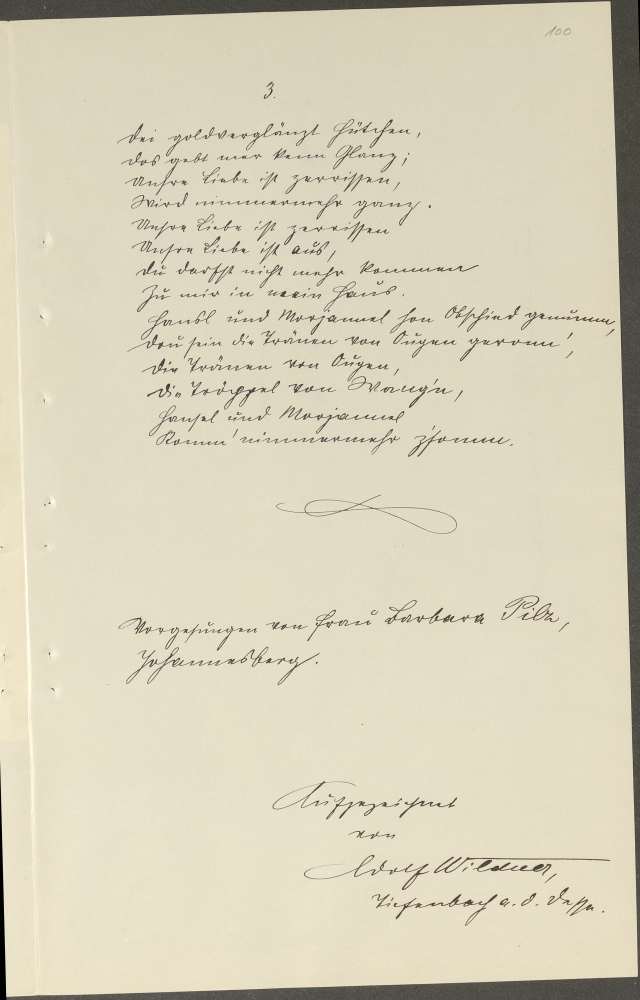 100
3.
Dei goldverglänzt Hütchen,
das gebt mer kenn Glanz;
Unsre Liebe ist zerrissen,
Wird nimmermehr ganz.
Unsre Liebe ist zerrissen
Unsre Liebe ist aus,
Du darfst nicht mehr kommen
Zu mir in mein Haus.
Hansl und Marjannel hon Obschied genumm,
Dou sein die Tränen von Ougen geronn',
Die Tränen von Ougen,
die Tröppel von Wang'n,
Hansel und Marjannel
Komm' nimmermehr z'somm.
Vorgesungen von Frau Barbara Pilz,
Johannesberg.
Aufgezeichnet
von
Adolf Wildner,
Tiefenbach a. d. Desse.